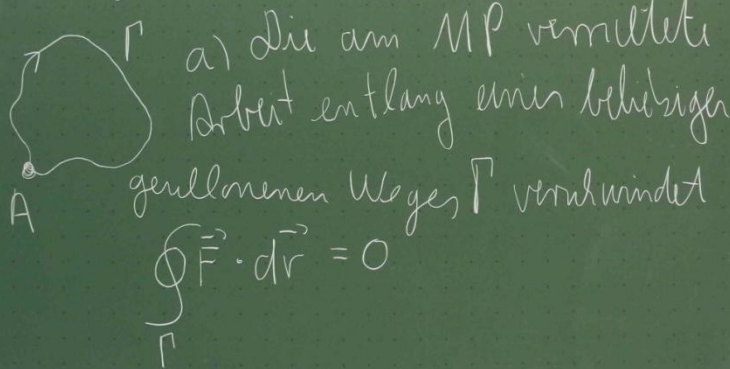 Γ
a) Die am MP verrichtete
Arbeit entlang eines beliebigen
geschlossenen Weges Γ verschwindet
A
∮ F⃗ · dr⃗ = 0
Γ